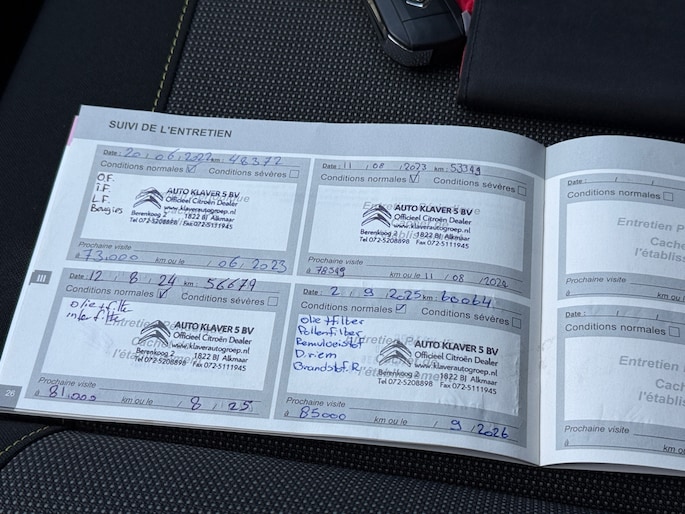 SUIVI DE L'ENTRETIEN
Date : 20 / 06 / 2022 km : 48372
Conditions normales ☑ Conditions sévères ☐
O.F.
I.F.
L.F.
Bougies
AUTO KLAVER 5 BV
Officieel Citroën Dealer
www.klaverautogroep.nl
Berenkoog 2 1822 BJ Alkmaar
Tel 072-5208898 Fax 072-5111945
Prochaine visite
à 73.000 km ou le / 06 / 2023
Date : 11 / 08 / 2023 km : 53349
Conditions normales ☑ Conditions sévères ☐
AUTO KLAVER 5 BV
Officieel Citroën Dealer
www.klaverautogroep.nl
Berenkoog 2 1822 BJ Alkmaar
Tel 072-5208898 Fax 072-5111945
Prochaine visite
à 78349 km ou le 11 / 08 / 2024
III
Date : 12 / 8 / 24 km : 56679
Conditions normales ☑ Conditions sévères ☐
olie+filter
interfilter
Cachet de
l'établissement
AUTO KLAVER 5 BV
Officieel Citroën Dealer
www.klaverautogroep.nl
Berenkoog 2 1822 BJ Alkmaar
Tel 072-5208898 Fax 072-5111945
Prochaine visite
à 81.000 km ou le / 8 / 25
Date : 2 / 9 / 2025 km : 60064
Conditions normales ☑ Conditions sévères ☐
olie+filter
Pollenfilter
Remvloeistof
D.riem
Brandstf.R.
AUTO KLAVER 5 BV
Officieel Citroën Dealer
www.klaverautogroep.nl
Berenkoog 2 1822 BJ Alkmaar
Tel 072-5208898 Fax 072-5111945
Prochaine visite
à 85000 km ou le / 9 / 2026
26
Date : / /
Conditions normales ☐
Entretien P
Cache
l'établis
Prochaine visite
à km ou le
Date : / /
Conditions normales ☐
Entretien P
Cache
l'établis
Prochaine visite
à km ou le